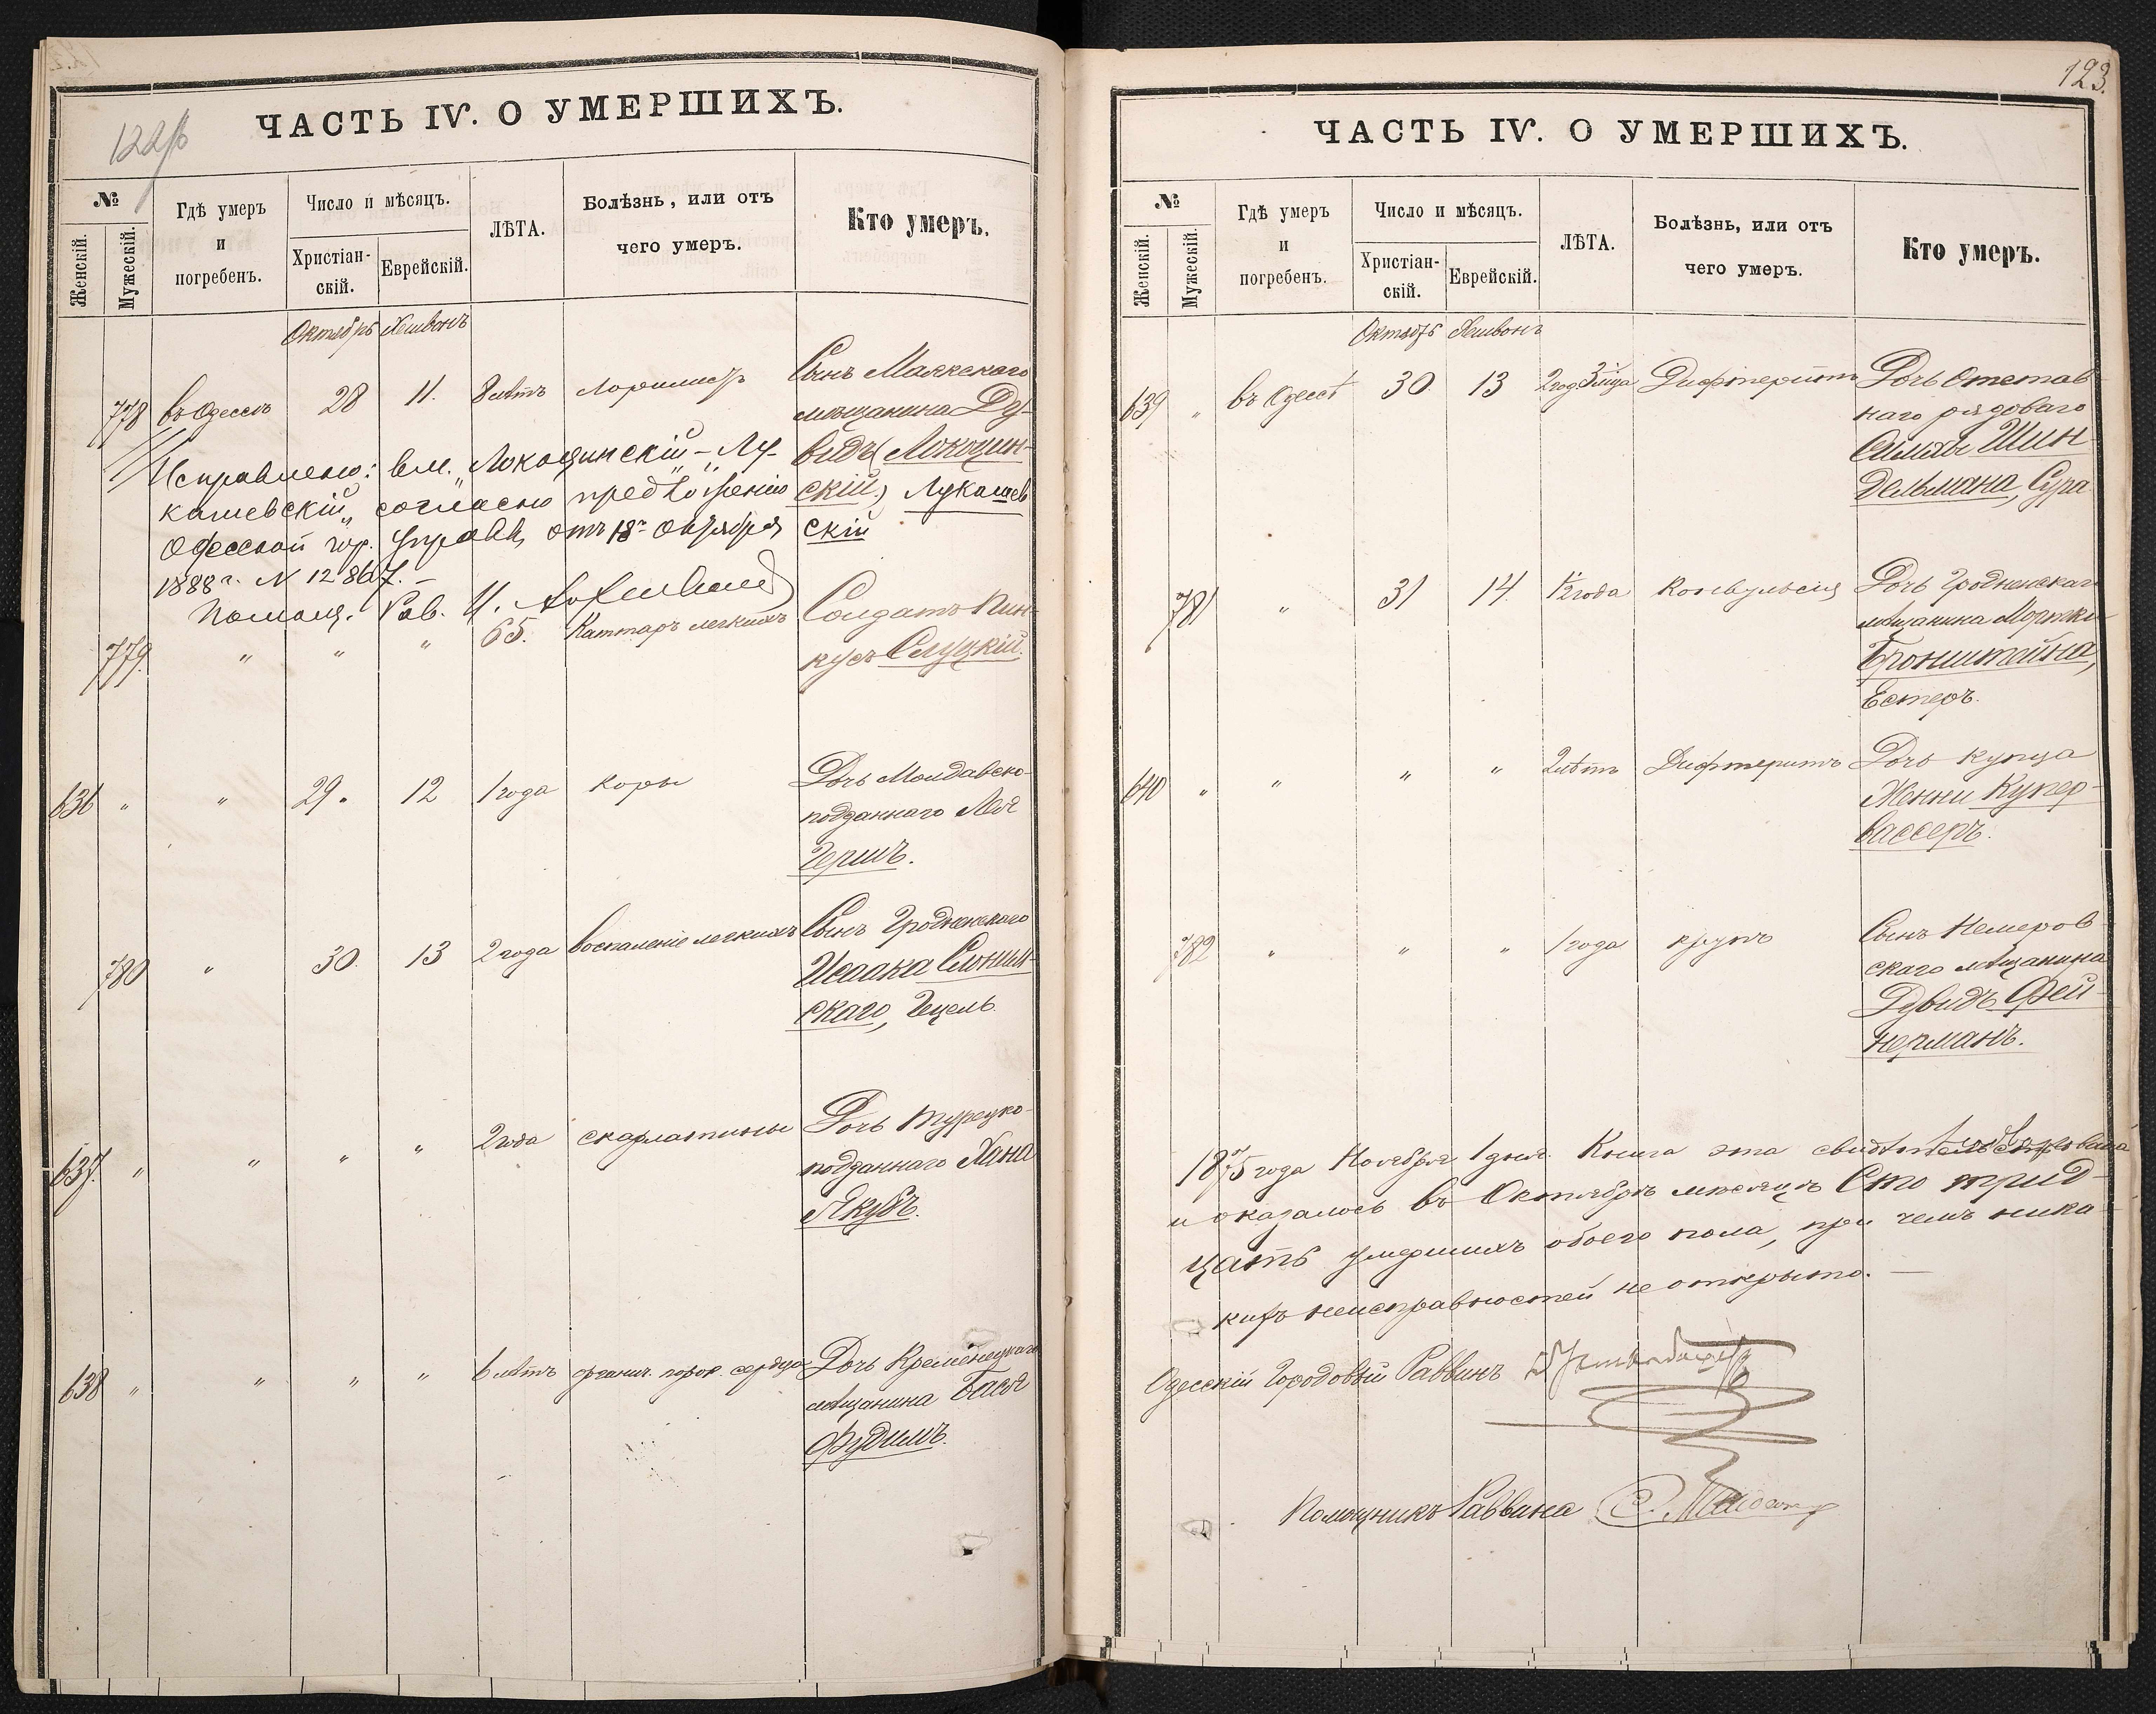 122/б
ЧАСТЬ IV. О УМЕРШИХЪ.
№
Женскій.
Мужескій.
Гдѣ умеръ
и
погребенъ.
Число и мѣсяцъ.
Христіан-
скій.
Еврейскій.
ЛѢТА.
Болѣзнь, или отъ
чего умеръ.
Кто умеръ.
Октябрь Хешвонъ
778 въ Одессѣ 28 11. 8 лѣтъ Сынъ Маякскаго
мѣщанина Ду-
видъ (Локощин-
скій.) Лукашев
скій
Исправлено: вм. „Локощинскій" – „Лу-
кашевскій" согласно предложенію
Одесской гор. Управы, отъ 18го Октября
1888 г. N 12867. –
Помощ. Рав.
779. " " " 65. Каттаръ легкихъ Солдатъ Пин-
кусъ Слуцкій.
636 " " 29. 12 1 года Коры Дочь Молдавско-
подданнаго Лея
Гершъ.
780 " 30. 13 2 года Воспаленіе легкихъ Сынъ Гродненскаго
Исаака Слоним-
скаго, Гецель.
637. " " " " 2 года скарлатины Дочь турецко-
подданнаго Хана
Якубъ.
638 " " " " 6 лѣтъ органич. порок. сердца Дочь Кременецкаго
мѣщанина Бася
Фудимъ.
123.
ЧАСТЬ IV. О УМЕРШИХЪ.
№
Женскій.
Мужескій.
Гдѣ умеръ
и
погребенъ.
Число и мѣсяцъ.
Христіан-
скій.
Еврейскій.
ЛѢТА.
Болѣзнь, или отъ
чего умеръ.
Кто умеръ.
Октябрь Хешвонъ
639 " въ Одессѣ 30. 13 2 год. 3 мца Дифтеритъ Дочь Отстав-
наго рядоваго
Симхи Шин
дельмана, Сура
781 " 31 14. 1/2 года Конвульсія Дочь Гродненскаго
мѣщанина Мортки
Бронштейна,
Естеръ.
640 " " " " 2 лѣтъ Дифтеритъ Дочь купца
Женни Купер-
вассеръ.
782 " " " 1 года крупъ Сынъ Немиров-
скаго мѣщанина
Дувидъ Фей-
нерманъ.
1875 года Ноября 1 дня. Книга эта
и оказалось въ Октябрѣ мѣсяцѣ Сто трид-
цать умершихъ обоего пола, при чемъ ника-
кихъ неисправностей не открыто. —
Одесскій Городовый Раввинъ
Помощникъ Раввина